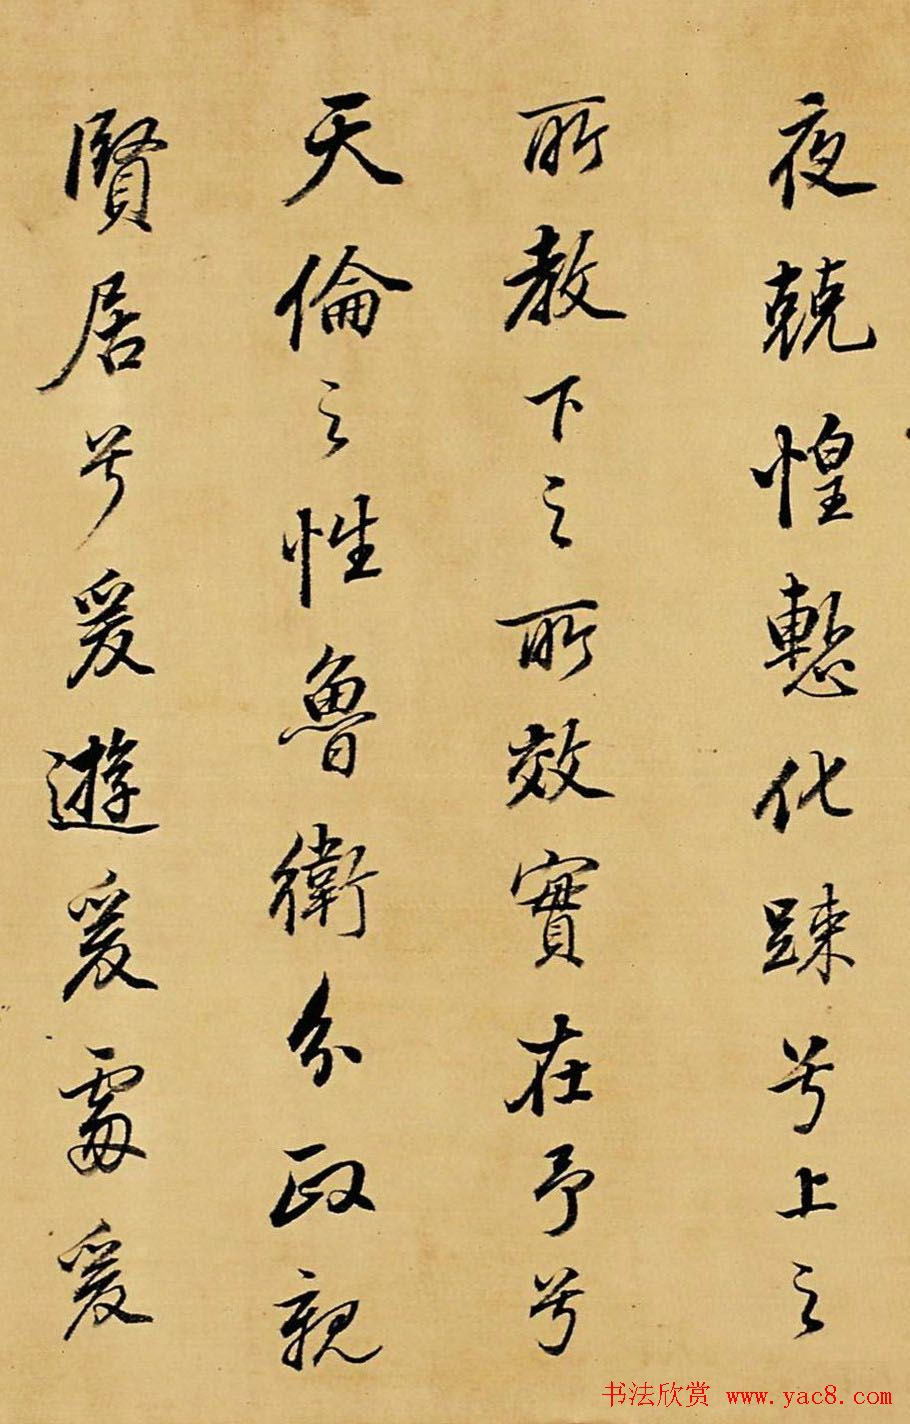 夜兢惶慙化踈兮上之
所教下之所效實在予兮
天倫之性魯衛分政親
賢居兮爰遊爰處爰
书法欣赏 www.yac8.com